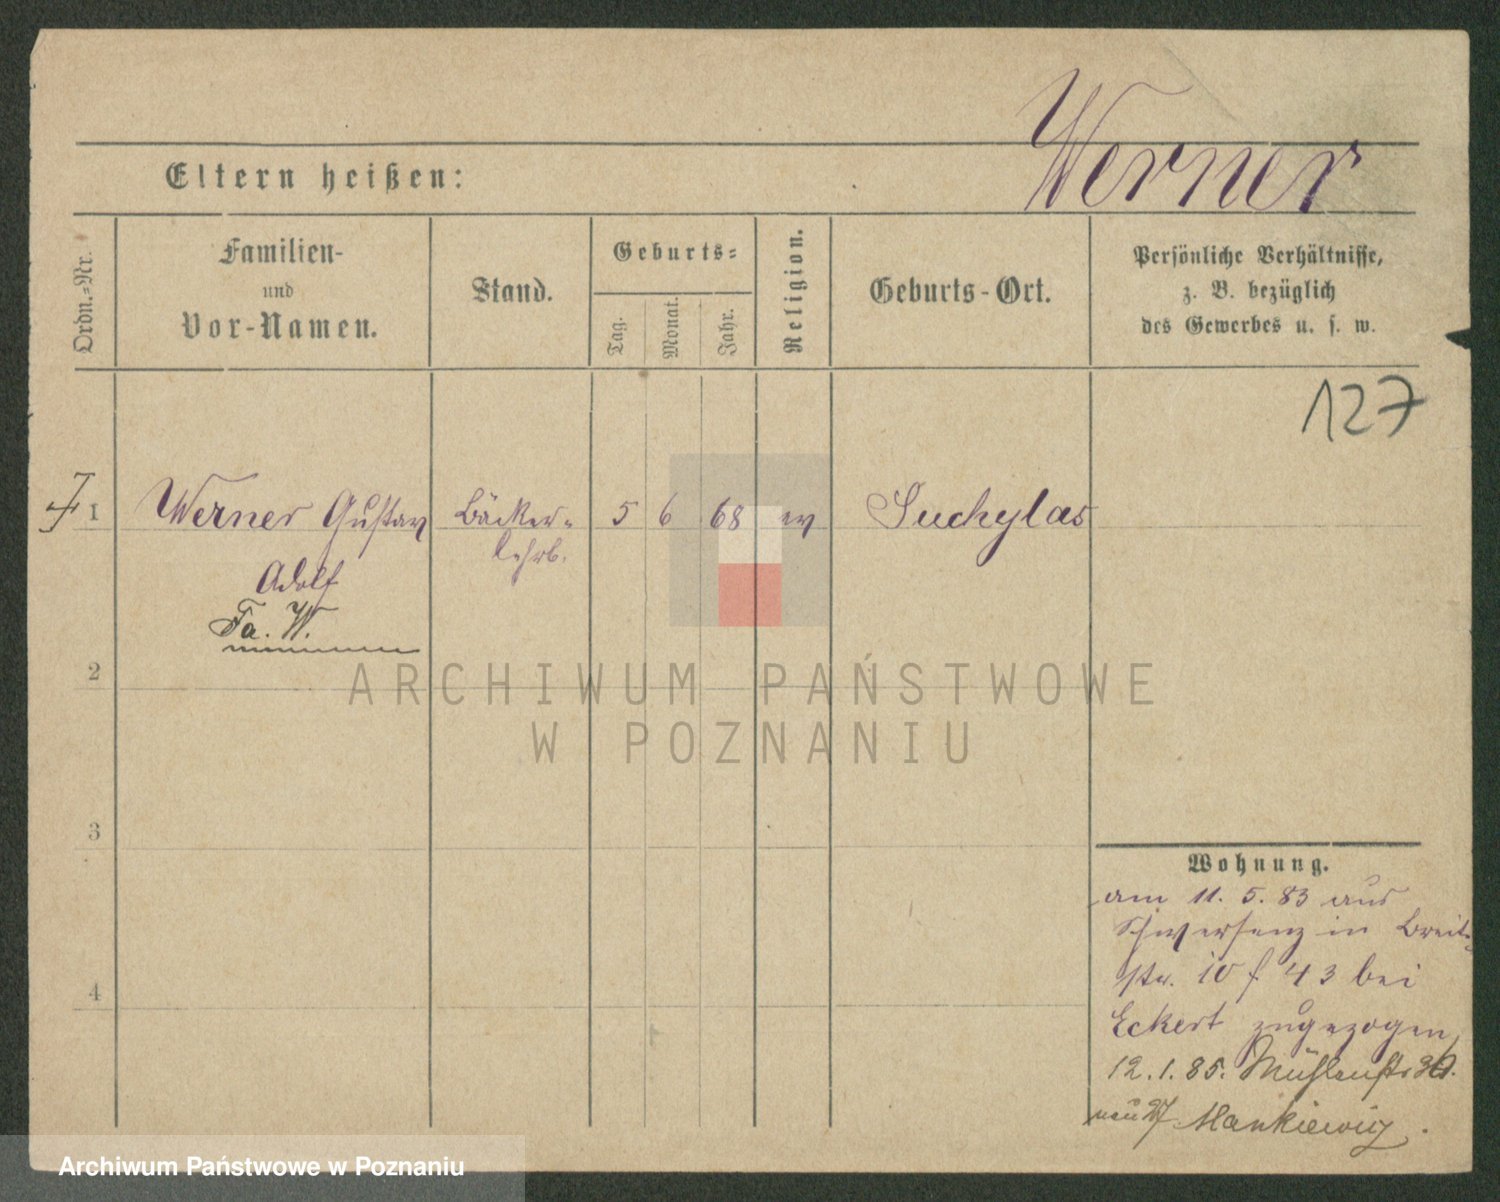 Werner
Eltern heißen:
Ordn.-Nr.
Familien-
und
Vor-Namen.
Stand.
Geburts-
Tag.
Monat.
Jahr.
Religion.
Geburts-Ort.
Persönliche Verhältnisse,
z. B. bezüglich
des Gewerbes u. s. w.
127
1 Werner Gustav Bäcker- 5 6 68 ev Suchylas
Adolf lehrb.
Fa. W.
2
ARCHIWUM PAŃSTWOWE
W POZNANIU
3
4
Wohnung.
am 11. 5. 83 aus
Schwersenz in Breite-
str. 10 f 43 bei
Eckert zugezogen
12.1.85. Mühlenstr
Mankiewicz.
Archiwum Państwowe w Poznaniu